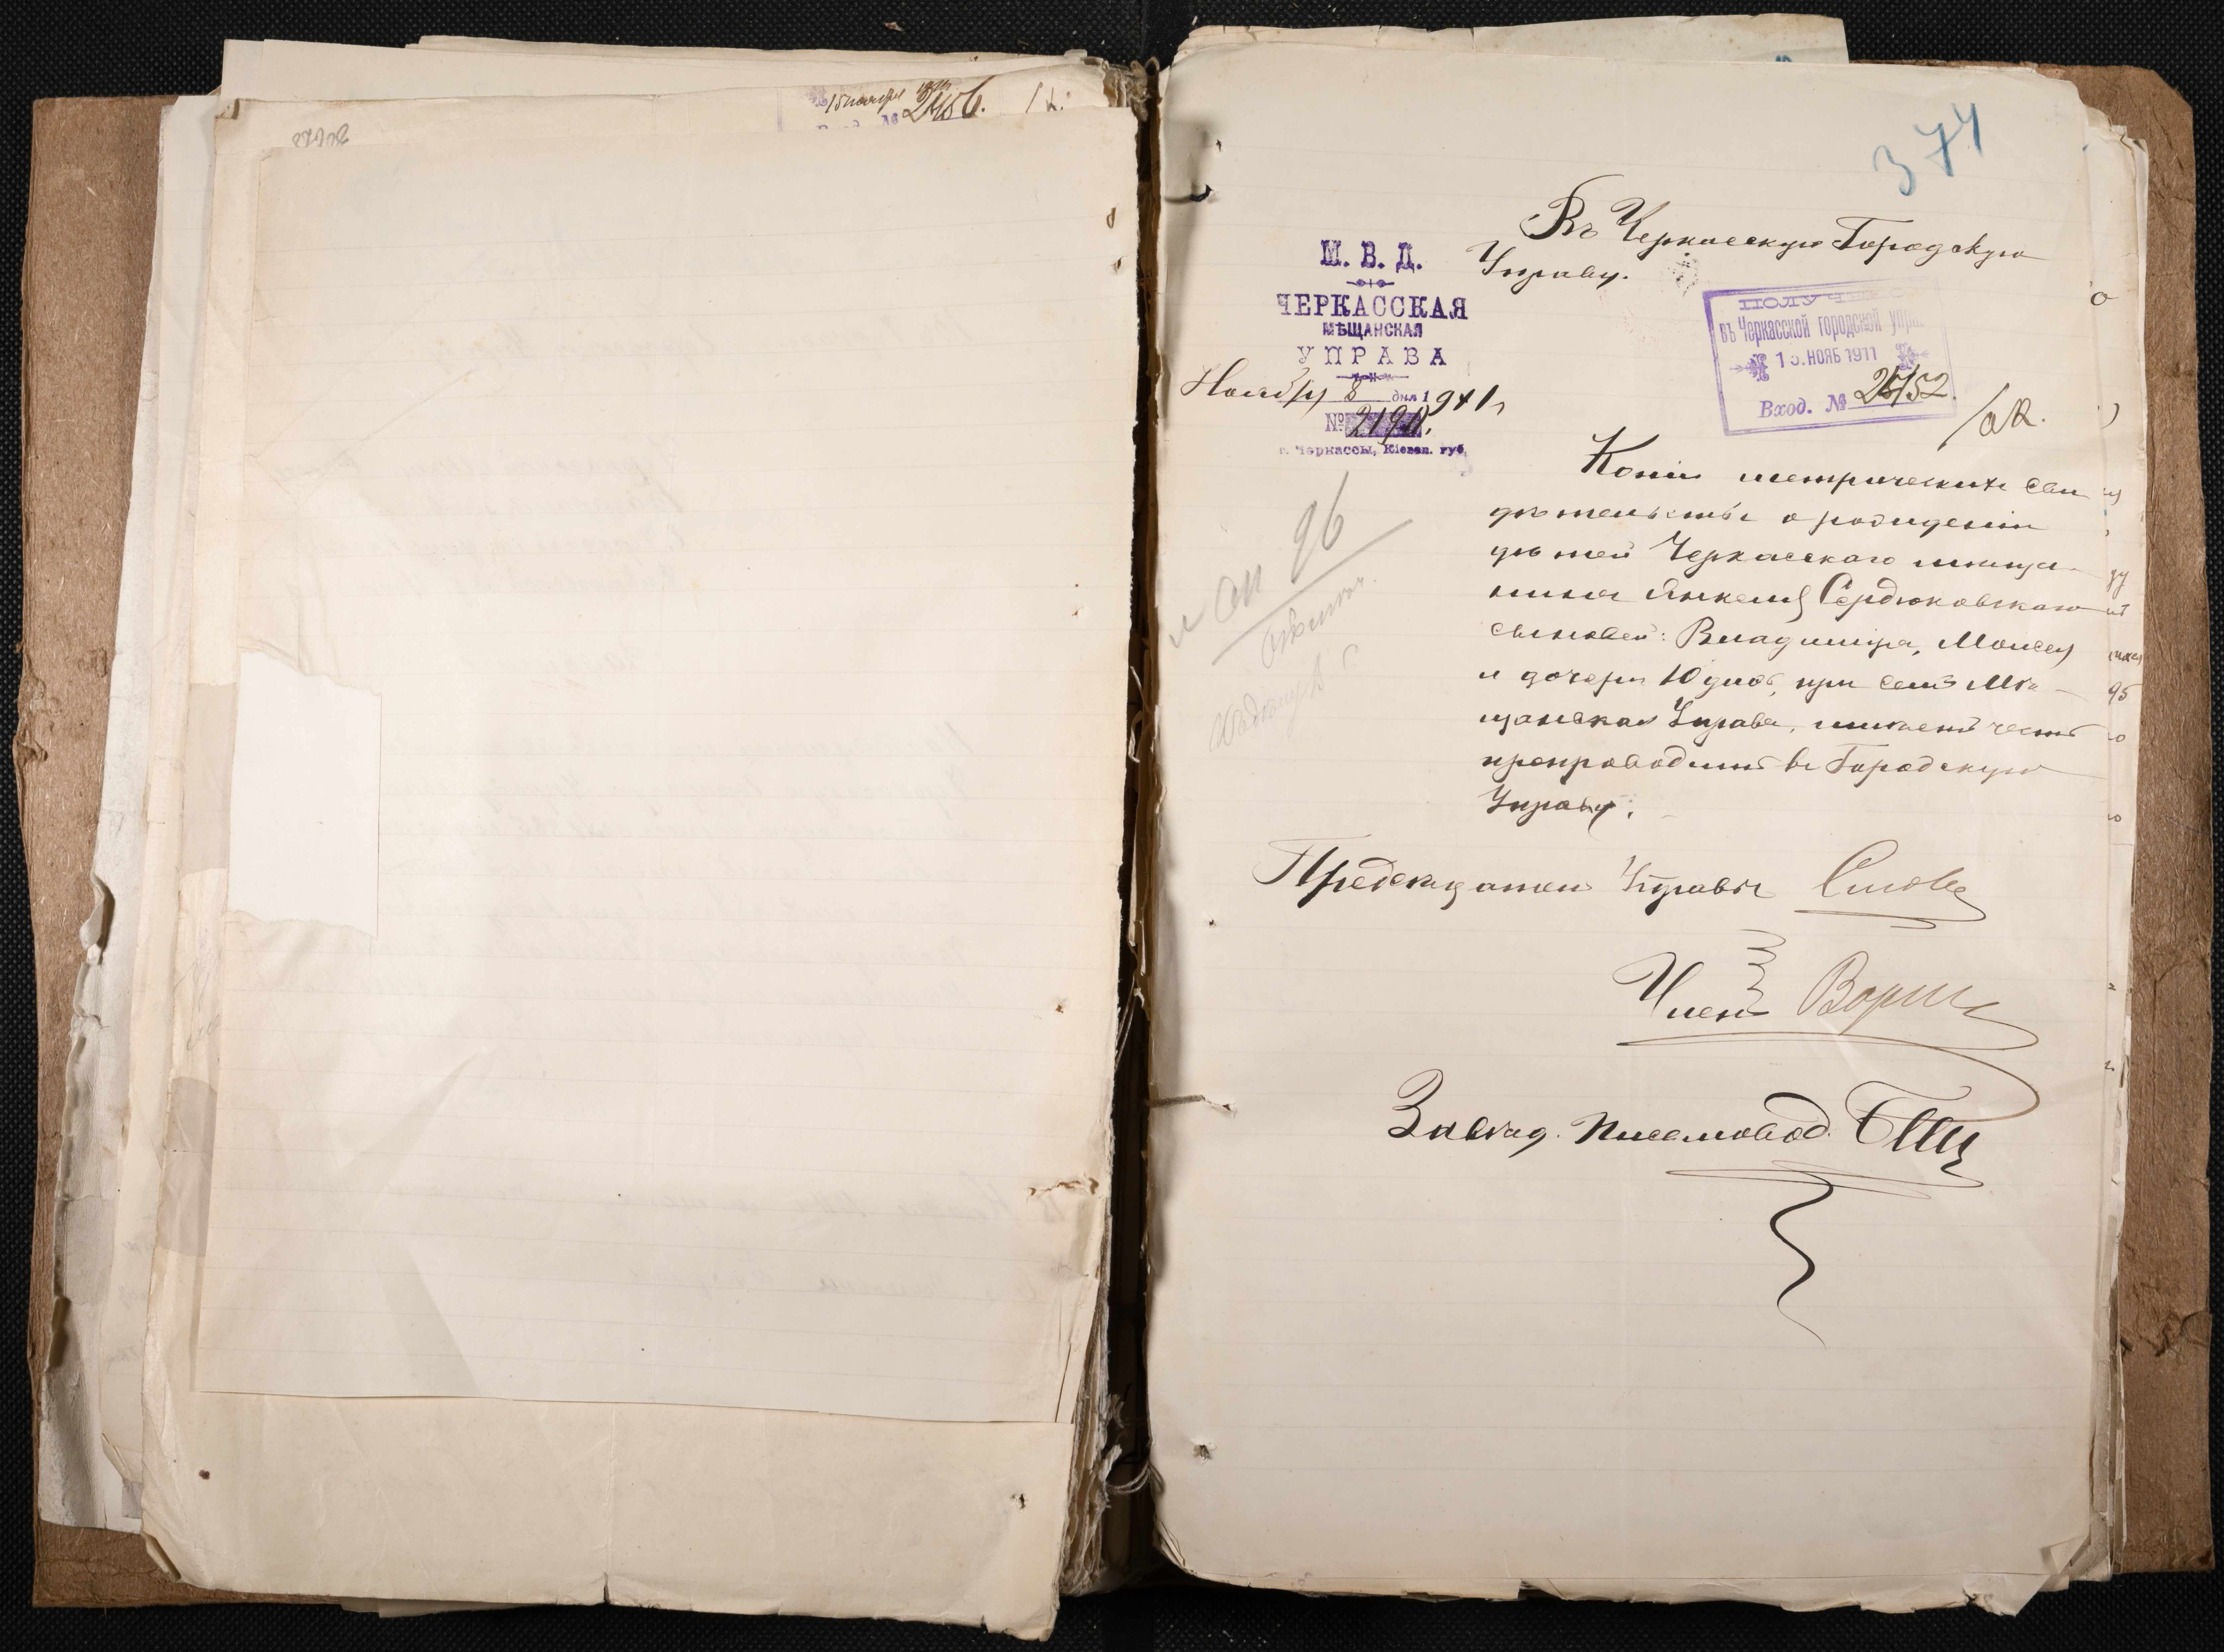 15 ноября 1911
Вход. № 2456.
374
Въ Черкасскую Городскую
Управу.
М. В. Д.
ЧЕРКАССКАЯ
МѢЩАНСКАЯ
УПРАВА
Ноября 8 дня 1911 г.
№ 2190.
г. Черкассы, Кіевск. губ.
ПОЛУЧЕНО
въ Черкасской городской управ
НОЯБ 1911
Вход. №
Копіи метрическихъ сви
дѣтельствъ о рожденіи
дѣтей Черкасскаго мѣща-
нина Янкеля Сердюковскаго
сыновей: Владиміра, Моисея
и дочери Юдиѳ, при семъ Мѣ-
щанская Управа, имѣетъ честь
препроводить въ Городскую
Управу.
96
Предсѣдатель Управы
Членъ
Завѣд. Писемовод.